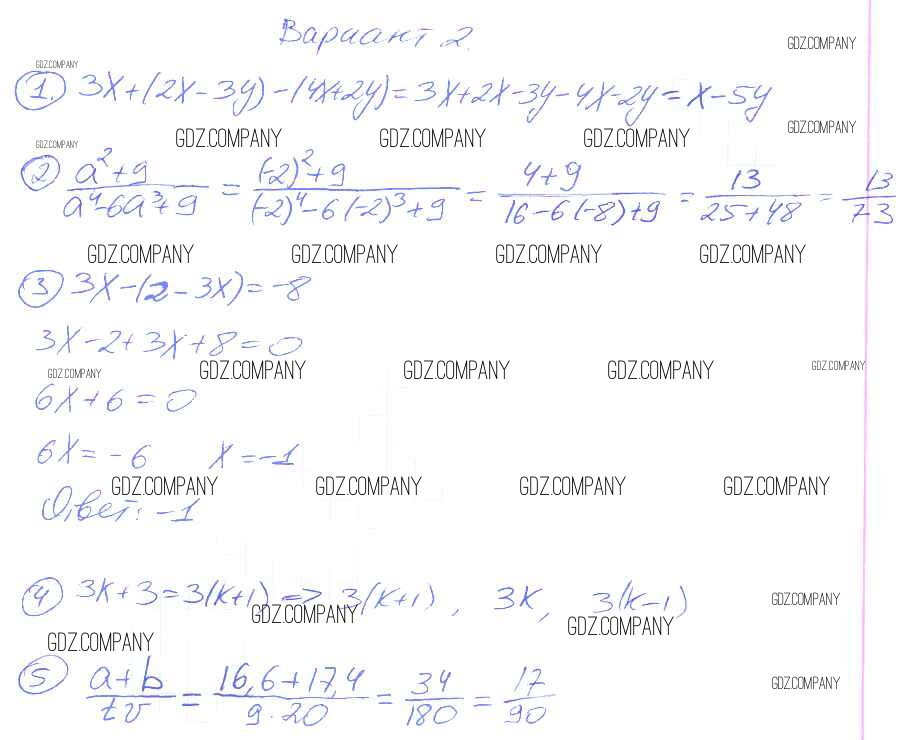 Вариант 2.
GDZ.COMPANY
GDZ.COMPANY
1. 3x+(2x-3y)-(4x+2y)=3x+2x-3y-4x-2y=x-5y
GDZ.COMPANY GDZ.COMPANY GDZ.COMPANY GDZ.COMPANY
GDZ.COMPANY
2 (a²+9)/(a⁴-6a³+9) = ((-2)²+9)/((-2)⁴-6(-2)³+9) = (4+9)/(16-6(-8)+9) = 13/(25+48) = 13/73
GDZ.COMPANY GDZ.COMPANY GDZ.COMPANY GDZ.COMPANY
3 3x-(2-3x)=-8
3x-2+3x+8=0
GDZ.COMPANY GDZ.COMPANY GDZ.COMPANY GDZ.COMPANY GDZ.COMPANY
6x+6=0
6x=-6 x=-1
GDZ.COMPANY GDZ.COMPANY GDZ.COMPANY GDZ.COMPANY
Ответ: -1
4 3k+3=3(k+1) => 3(k+1), 3k, 3(k-1)
GDZ.COMPANY GDZ.COMPANY GDZ.COMPANY
GDZ.COMPANY
5 (a+b)/(tv) = (16,6+17,4)/(9·20) = 34/180 = 17/90
GDZ.COMPANY